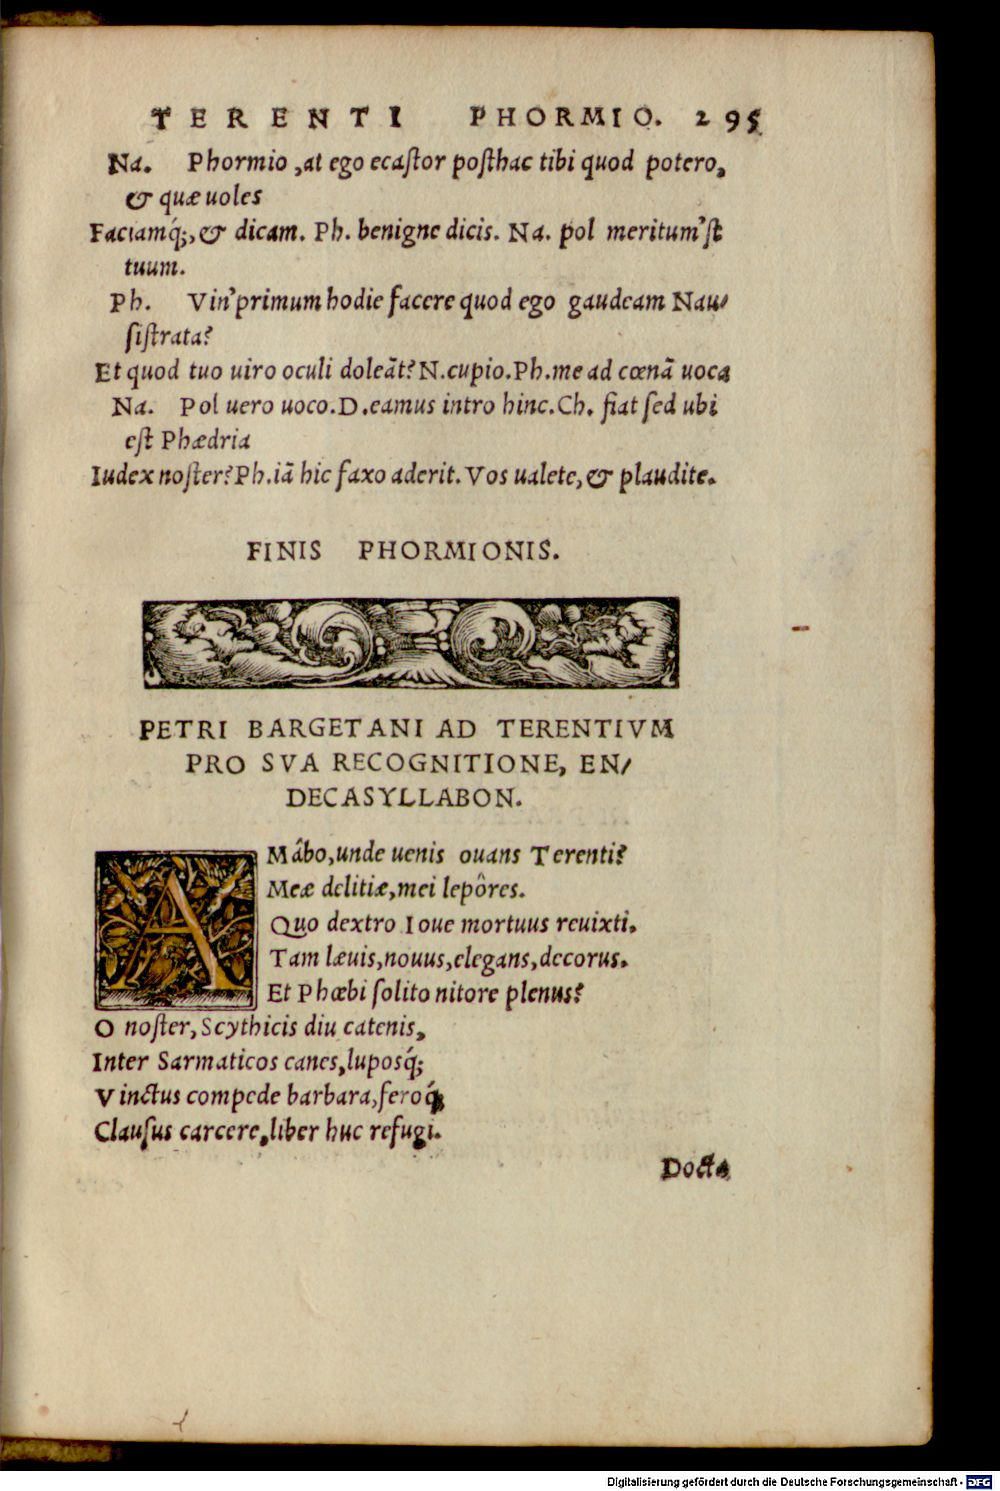 TERENTI PHORMIO. 295
Na. Phormio, at ego ecastor posthac tibi quod potero,
& quæ uoles
Faciamq́;, & dicam. Ph. benigne dicis. Na. pol meritum'st
tuum.
Ph. Vin' primum hodie facere quod ego gaudeam Nau/
sistrata?
Et quod tuo uiro oculi doleāt? N. cupio. Ph. me ad cœnā uoca
Na. Pol uero uoco. D. eamus intro hinc. Ch. fiat sed ubi
est Phædria
Iudex noster? Ph. iā hic faxo aderit. Vos ualete, & plaudite.
FINIS PHORMIONIS.
PETRI BARGETANI AD TERENTIVM
PRO SVA RECOGNITIONE, EN/
DECASYLLABON.
AMâbo, unde uenis ouans Terenti?
Meæ delitiæ, mei lepôres.
Quo dextro Ioue mortuus reuixti.
Tam læuis, nouus, elegans, decorus.
Et Phœbi solito nitore plenus?
O noster, Scythicis diu catenis,
Inter Sarmaticos canes, luposq́;
Vinctus compede barbara, feroq́;
Clausus carcere, liber huc refugi.
Docta
Digitalisierung gefördert durch die Deutsche Forschungsgemeinschaft - DFG